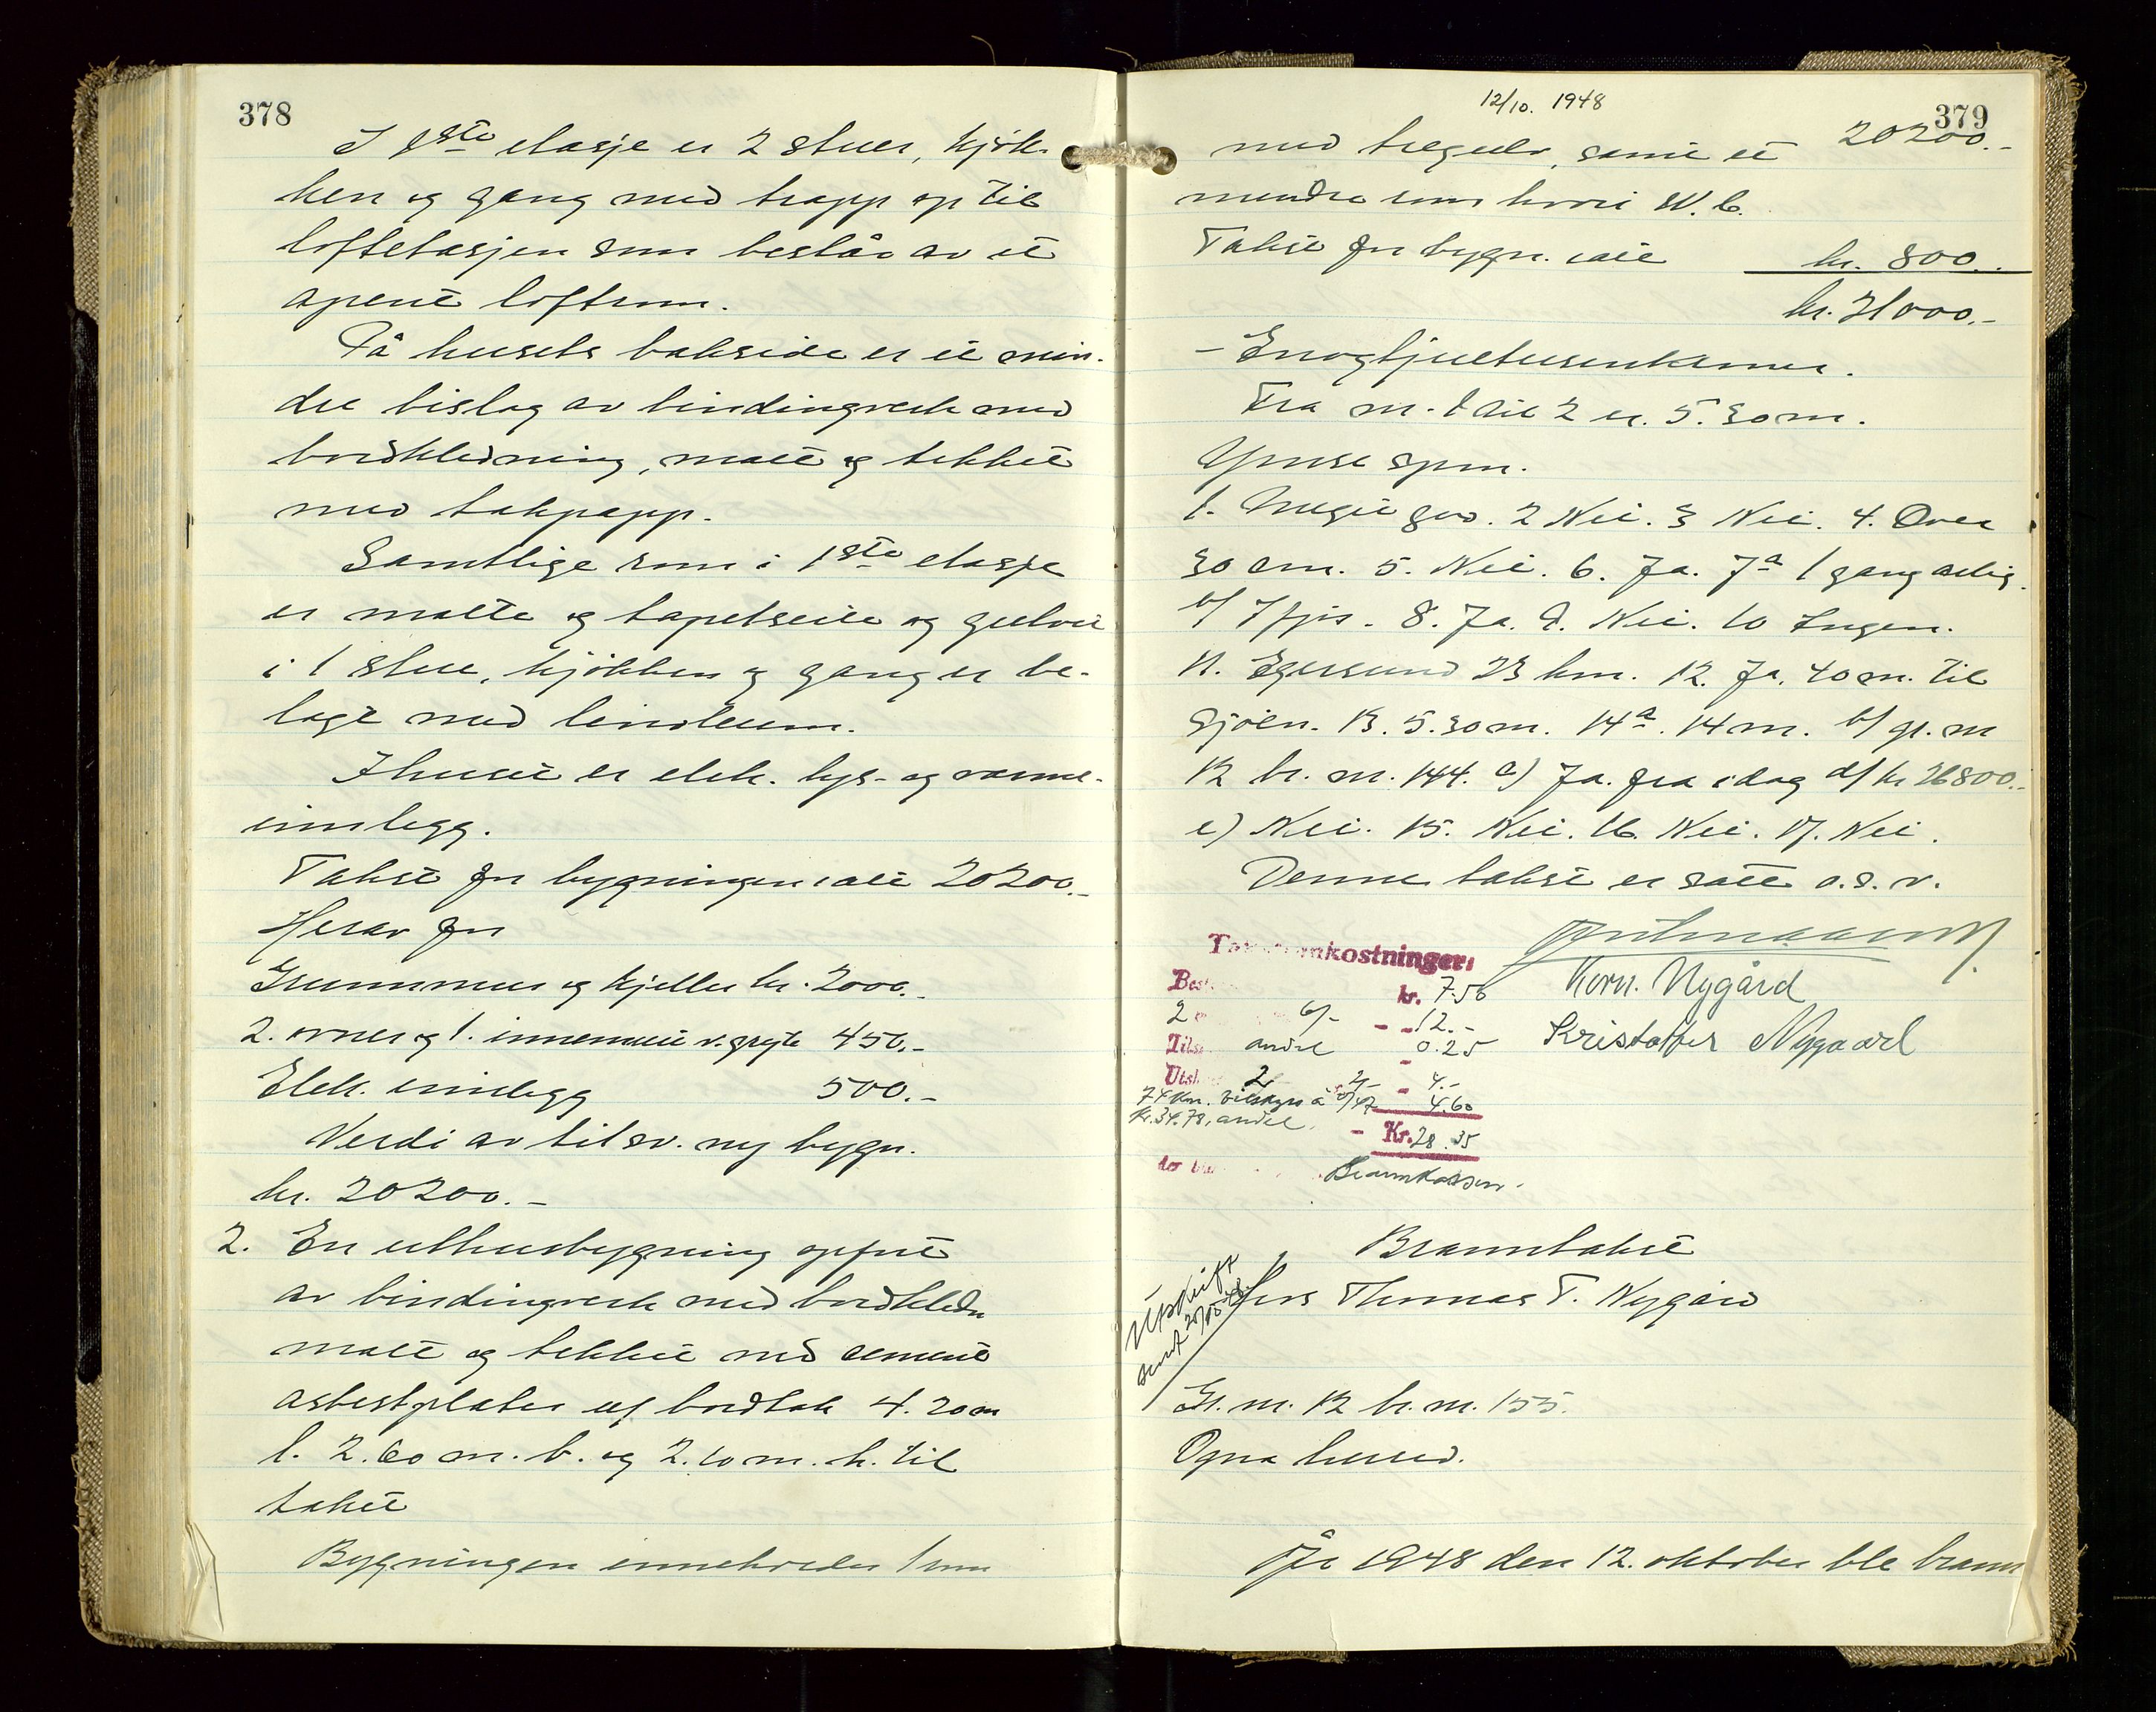 378
I 1ste etasje er 2 stuer, kjøk-
ken og gang med trapp op til
loftetasjen som består av et
åpent loftrum.
På husets bakside er et min-
dre bislag av bindingverk med
bordkledning, malt og tekket
med takpapp.
Samtlige rum i 1ste etasje
er malte og tapetserte og gulvet
i 1 stue, kjøkken og gang er be-
lagt med linoleum.
I huset er elek. lys- og varme-
innlegg.
Takst for bygningen ialt 20200.-
Herav for
Grunnmur og kjeller kr. 2000.-
2. ovner og 1. innemuret v. gryte 450.-
Elek. innlegg 500.-
Verdi av tilsv. ny bygn.
kr. 20200.-
2. En uthusbygning opført
av bindingverk med bordkledn
malt og tekket med cement
asbestplater uf bordtak 4.20 m
l. 2.60 m. b. og 2.10 m. h. til
taket
Bygningen inneholder 1 rum
12/10. 1948
379
med tregulv, samt et 20200.-
mindre rum hvori W.C.
Takst for bygn. ialt kr. 800.-
kr. 21000.-
- Enogtjuetusenkroner.
Fra m. 1 til 2 er 5.30 m.
Ymse spm.
1. Meget god. 2 Nei. 3 Nei. 4. Over
30 cm. 5. Nei. 6. Ja. 7a 1 gang årlig.
b/ 7 pps. 8. Ja. 9. Nei. 10 Ingen.
11. Egersund 23 km. 12. Ja. 40 m. til
Sjøen. 13. 5.30 m. 14a. 14 m. b/ gr. m
12 br. m. 144. c) Ja. fra idag d/ kr 26800.-
e) Nei. 15. Nei. 16. Nei. 17. Nei.
Denne takst er satt o.s.v.
Korn. Nygård
Kristoffer Nygaard
omkostninger:
kr. 7.50
2 6/- - - 12.-
andel 0.25
2 2/- - 4.-
74 km. bilskyss à 0/47 4.60
kr. 34.78, andel
- Kr. 28.35
Brannkassen.
Branntakst
Utskrift
sendt
hos Thomas T. Nygård
Gr. m. 12 br. m. 155.
Ogna herred.
År 1948 den 12. oktober ble brann